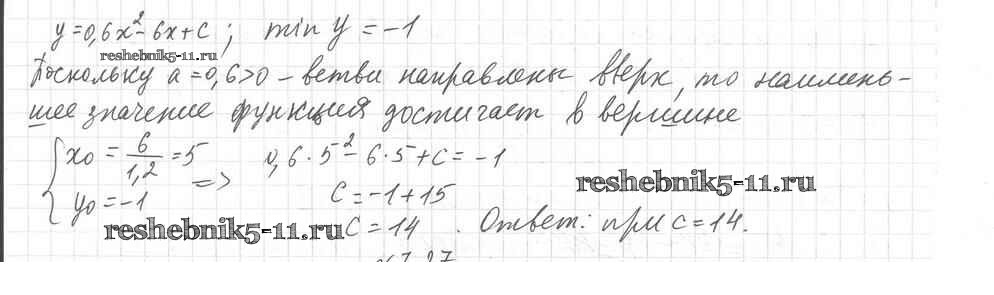 y=0,6x²-6x+c; min y = -1
reshebnik5-11.ru
Поскольку a=0,6>0 - ветви направлены вверх, то наимень-
шее значение функция достигает в вершине
{ x₀ = 6/1,2 = 5 => 0,6·5²-6·5+c = -1
y₀ = -1 c = -1+15
reshebnik5-11.ru
reshebnik5-11.ru
c = 14. Ответ: при c=14.